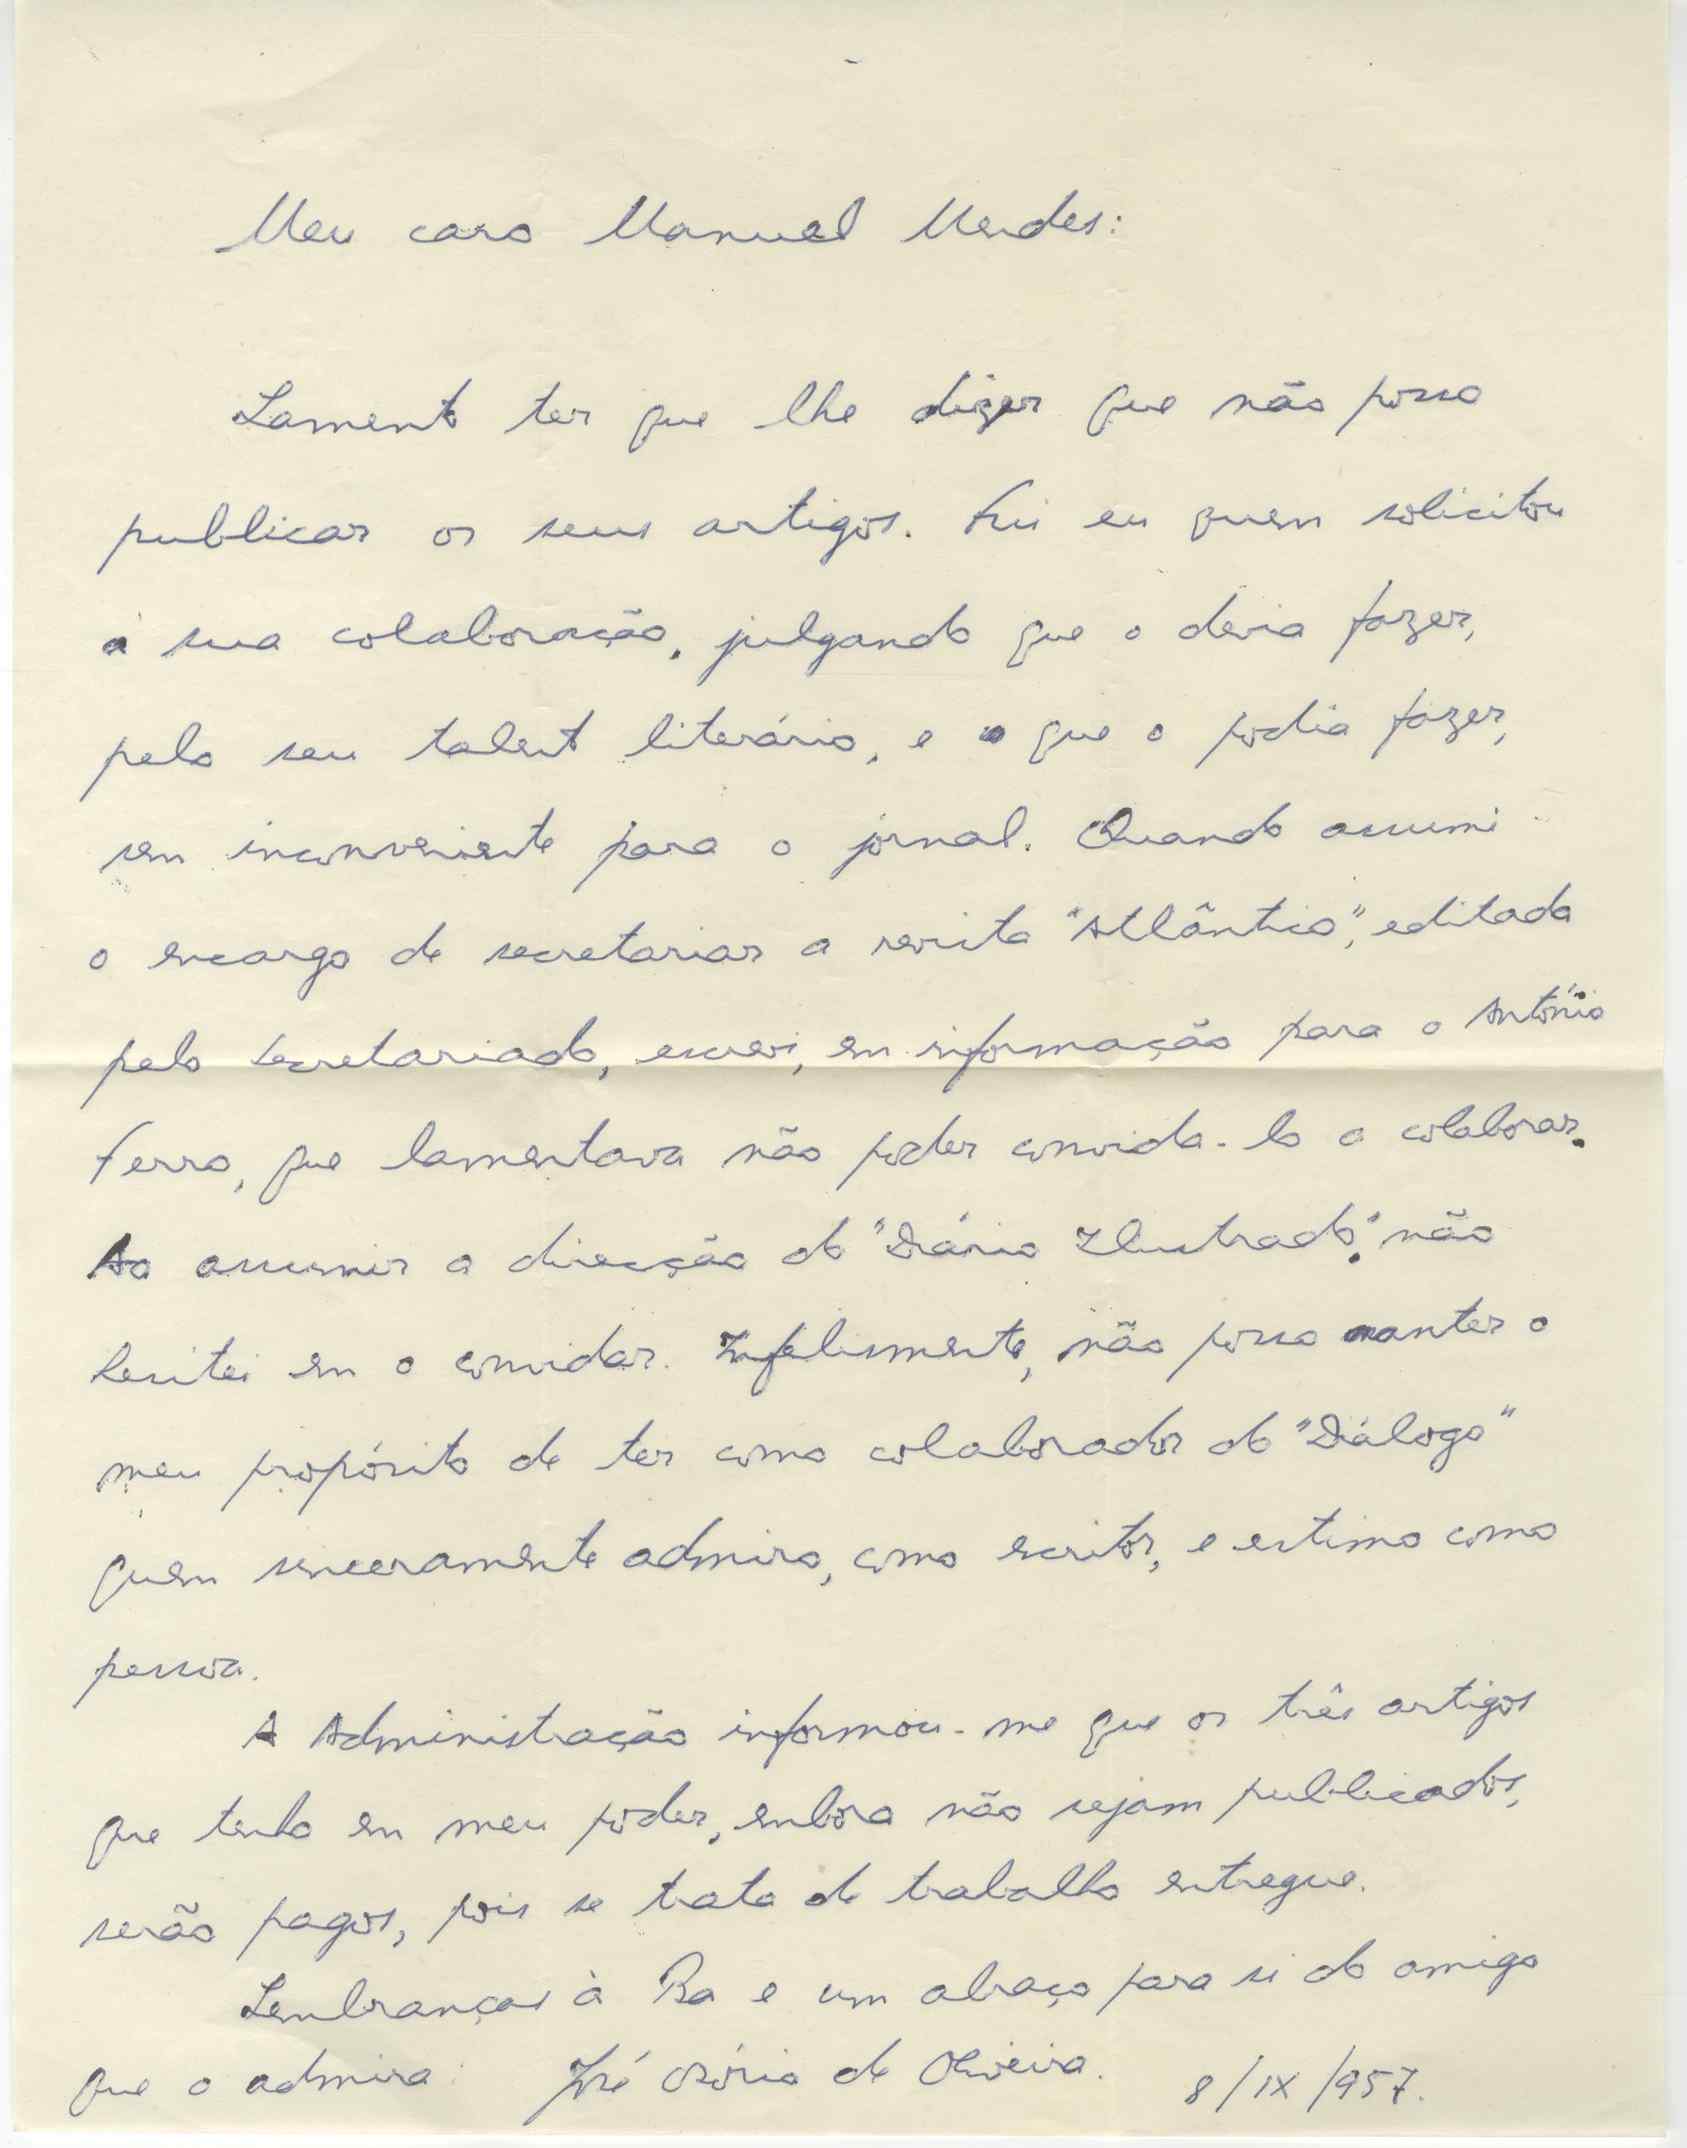 Meu caro Manuel Mendes:
Lamento ter que lhe dizer que não posso
publicar os seus artigos. Fui eu quem solicitou
a sua colaboração, julgando que o devia fazer,
pelo seu talento literário, e que o podia fazer,
sem inconveniente para o jornal. Quando assumi
o encargo de secretariar a revista "Atlântico", editada
pelo Secretariado, escrevi, em informação para o António
Ferro, que lamentava não poder convida-lo a colaborar.
Ao assumir a direcção do "Diário Ilustrado", não
hesitei em o convidar. Infelismente, não posso manter o
meu propósito de ter como colaborador do "Diálogo"
quem sinceramente admiro, como escritor, e estimo como
pessoa.
A Administração informou-me que os três artigos
que tenho em meu poder, embora não sejam publicados,
serão pagos, pois se trata de trabalho entregue.
Lembranças à Ba e um abraço para si do amigo
que o admira José Osório de Oliveira. 8/IX/957.